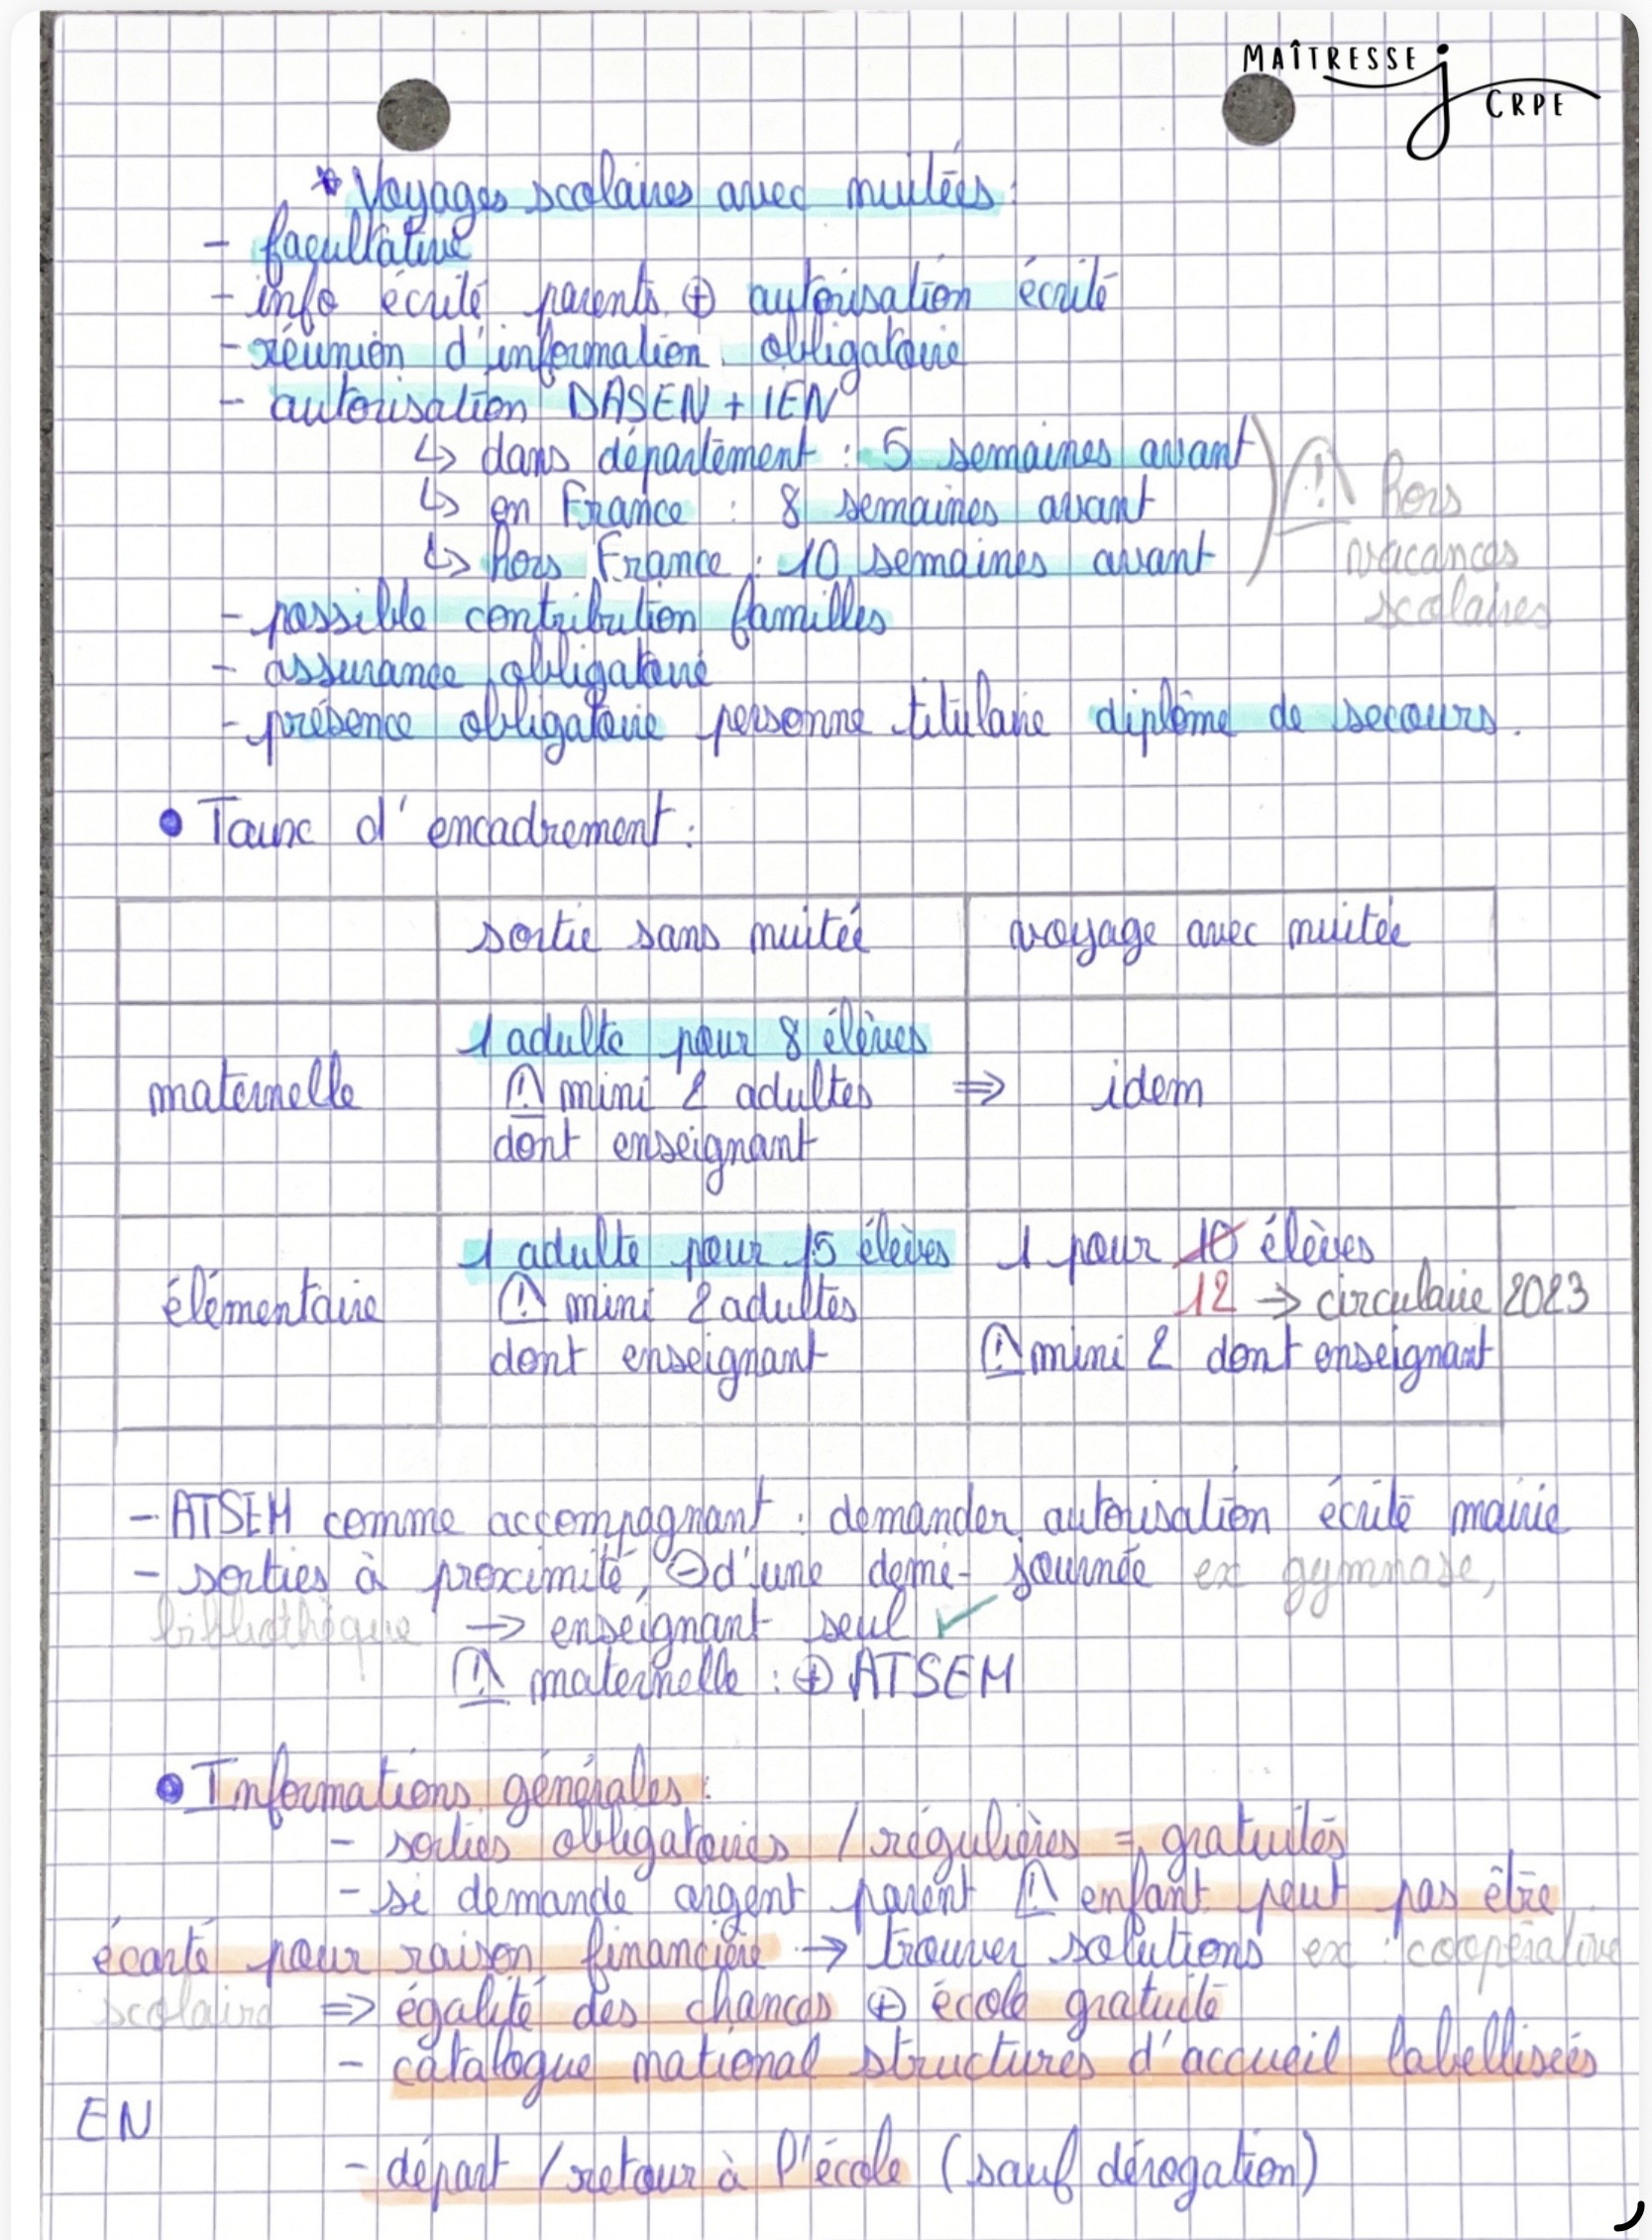 MAÎTRESSE J CRPE
* Voyages scolaires avec nuitées :
- facultative
- info écrite parents ⊕ autorisation écrite
- réunion d'information obligatoire
- autorisation DASEN + IEN
↳ dans département : 5 semaines avant
↳ en France : 8 semaines avant
↳ hors France : 10 semaines avant
⚠ hors
vacances
scolaires
- possible contribution familles
- assurance obligatoire
- présence obligatoire personne titulaire diplôme de secours.
• Taux d'encadrement :
sortie sans nuitée voyage avec nuitée
1 adulte pour 8 élèves
maternelle ⚠ mini 2 adultes ⇒ idem
dont enseignant
1 adulte pour 15 élèves 1 pour 10 élèves
élémentaire ⚠ mini 2 adultes 12 → circulaire 2023
dont enseignant ⚠ mini 2 dont enseignant
- ATSEM comme accompagnant : demander autorisation écrite mairie
- sorties à proximité, ⊖ d'une demi-journée ex gymnase,
bibliothèque → enseignant seul ✓
⚠ maternelle : ⊕ ATSEM
• Informations générales :
- sorties obligatoires / régulières = gratuités
- si demande argent parent ⚠ enfant peut pas être
écarté pour raison financière → trouver solutions ex : coopérative
scolaire ⇒ égalité des chances ⊕ école gratuite
- catalogue national structures d'accueil labellisées
EN
- départ / retour à l'école (sauf dérogation)